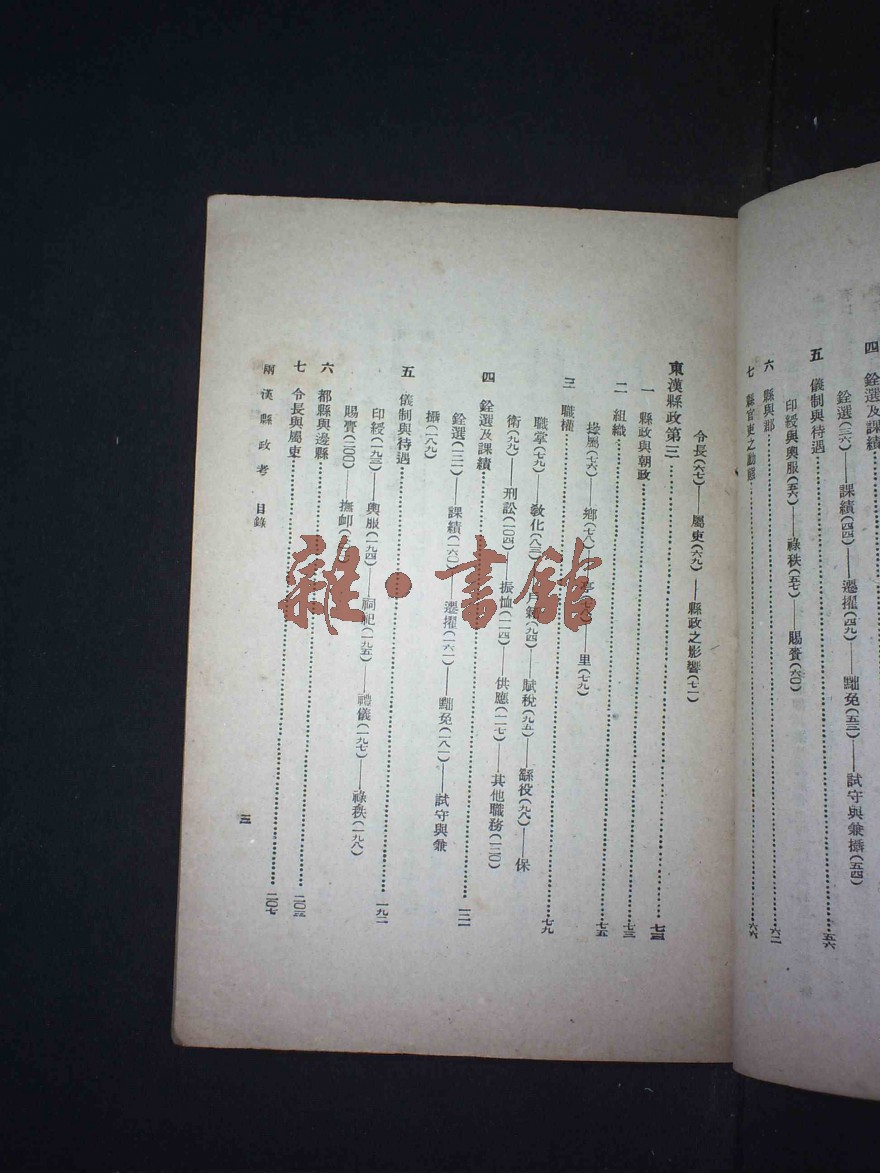 四　銓選及課績
銓選(三六)——課績(四四)——遷擢(四九)——黜免(五三)——試守與兼攝(五四)
五　儀制與待遇……五六
印綬與輿服(五六)——祿秩(五七)——賜賚(六〇)
六　縣與郡……六二
七　縣官吏之動態……六六
令長(六七)——屬吏(六九)——縣政之影響(七一)
東漢縣政第三……七三
一　縣政與朝政……七三
二　組織……七五
掾屬(七六)——鄉(七八)——亭——里(七九)
三　職權……七九
職掌(七九)——敎化(八三)——戶籍(九四)——賦稅(九五)——繇役(九八)——保
衛(九九)——刑訟(一〇四)——振恤(一一四)——供應(一一七)——其他職務(一二〇)
四　銓選及課績……一二一
銓選(一二一)——課績(一六〇)——遷擢(一六一)——黜免(一八一)——試守與兼
攝(一八九)
五　儀制與待遇……一九二
印綬(一九三)——輿服(一九四)——祠祀(一九五)——禮儀(一九七)——祿秩(一九八)
賜賚(二〇〇)——撫卹
六　都縣與邊縣……二〇三
七　令長與屬吏……二〇七
兩漢縣政考　目錄
三
雜·書館